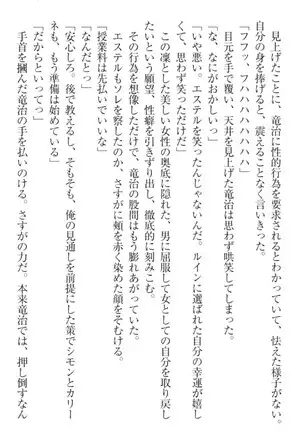 見上げたことに、竜治に性的行為を要求されるとわかっていて、怯えた様子がない。
自分の身を捧げると、震えることなく言いきった。
「フフッ、フハハハハハハハ」
目元を手で覆い、天井を見上げた竜治は思わず哄笑してしまう。
「な、なにがおかしいっ」
「いや悪い。エステルを笑ったんじゃないんだ。ルインに選ばれた自分の幸運が嬉し
くて、思わず笑っただけだ」
この凛とした美しい女性の奥底に隠れた、男に屈服して女としての自分を取り戻し
たいという願望、性癖を引きずり出し、徹底的に刻みこむ。
その行為を想像しただけで、竜治の股間はもう膨れあがっていた。
エステルもソレを察したのか、さすがに頬を赤く染めた顔をそむける。
「授業料は先払いでいいな」
「なんだとっ」
「安心しろ。後で教えるし、そもそも、俺の見通しを前提にした策でシモンとカリー
ネも、もう準備は始めている」
「だからといってっ」
手首を掴んだ竜治の手を払いのける。さすがの力だ。本来竜治では、押し倒すなん